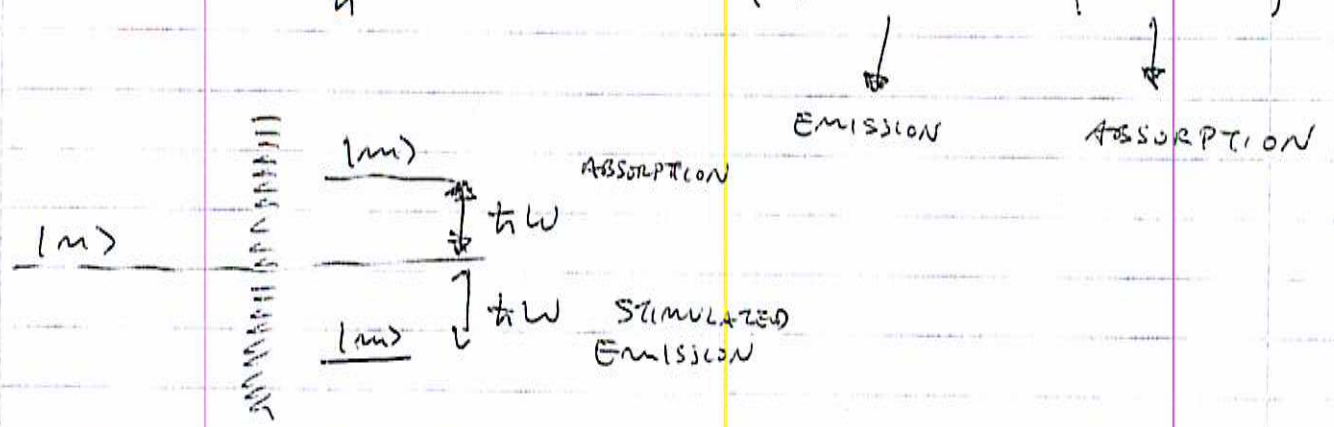 EMISSION ABSORPTION
|m⟩ ABSORPTION
ℏω
|n⟩
ℏω STIMULATED
|m⟩ EMISSION